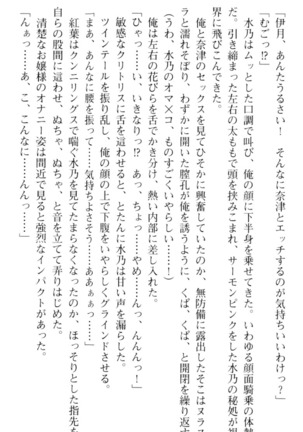 「伊月、あんたうるさい！　それにそんなに奈津とエッチするのが気持ちいいわけ？」
「むごっ!?」
水乃はムッとした口調で叫び、俺の顔に下半身を乗せてきた。いわゆる顔面騎乗の体勢
だ。引き締まった左右の太ももで頭を挟みこまれ、サーモンピンクをした水乃の秘処が視
界に飛びこんできた。
俺と奈津のセックスを見てひそかに興奮していたのか、無防備に露出したそこはヌラヌ
ラと濡れそぼり、わずかに開いた膣孔が俺を誘うように、くぱ、くぱ、と開閉を繰り返す。
（うわ、水乃のオマ×コ、ものすごくいやらしい……！）
俺は左右の花びらを舌でかき分け、熱い内部に差し入れた。
「ひゃっ……い、いきなりっ!?　あっ、ちょっ……やめ……んっ、んんんっ！」
敏感なクリトリスに舌を這わせると、とたんに水乃は甘い声を漏らした。
ツインテールを振り乱し、俺の顔の上で下腹をいやらしくグラインドさせる。
「まぁ、あんなに腰を振って……気持ちよさそう……あああぁっ……」
紅葉はクンニリングスで喘ぐ水乃を見てたまらなくなったのか、ほっそりとした指先を
自らの股間に這わせ、ぬちゃ、ぬちゃ、と音を立てて弄りはじめた。
清楚なお嬢様のオナニー姿は間近で見ると強烈なインパクトがあった。
「んぁっ……あ、こ、こんなに……んんっ……」